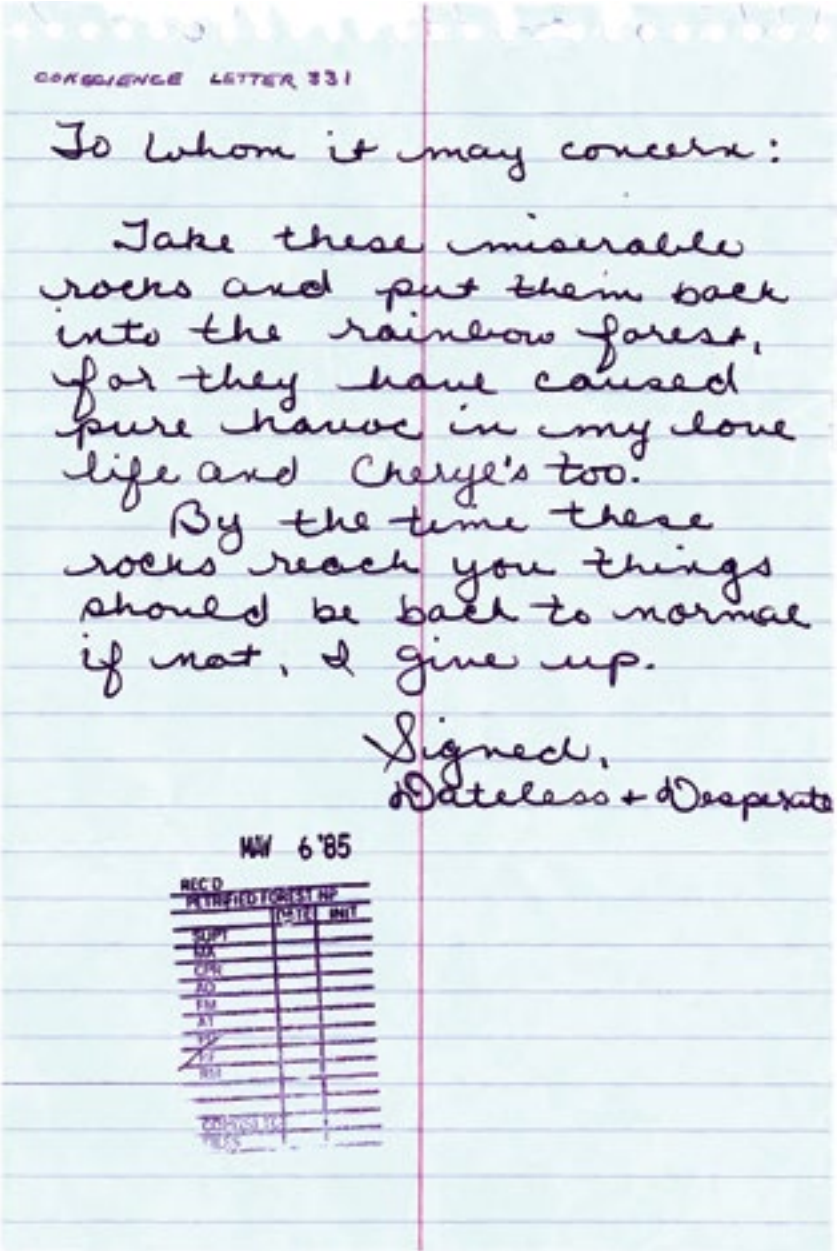 CONSCIENCE LETTER 331
To Whom it may concern:
Take these miserable
rocks and put them back
into the rainbow forest,
for they have caused
pure havoc in my love
life and Cheryl's too.
By the time these
rocks reach you things
should be back to normal
if not, I give up.
Signed,
Dateless + Desperate
MAY 6 '85
REC'D
PETRIFIED FOREST NP
DATE INIT
SUPT
MA
CPR
AO
FM
AT
RM
FILES